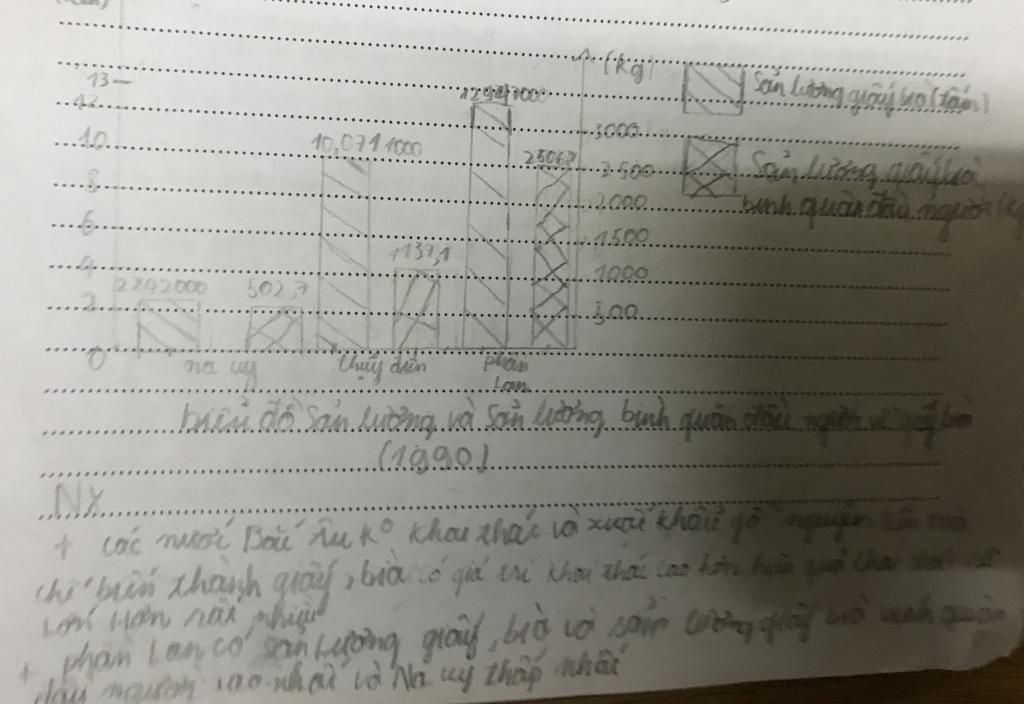 (kg)
13
12
10
8
6
4
2
0
3000
2500
2000
1500
1000
500
Sản lượng giấy bìa (tấn)
Sản lượng giấy bìa
bình quân đầu người
2292000
502,7
10,071 1000
1137,1
1294 1000
2506,7
na uy
thụy điển
phần
Lan
biểu đồ sản lượng và sản lượng bình quân đầu người về giấy bìa
(1990)
NX
+ các nước Bắc Âu k° khai thác và xuất khẩu gỗ nguyên liệu mà
chế biến thành giấy, bìa có giá trị khai thác cao hơn hiệu quả
lớn hơn rất nhiều
+ phần Lan có sản lượng giấy, bìa và sản lượng giấy bìa bình quân
đầu người cao nhất và Na uy thấp nhất